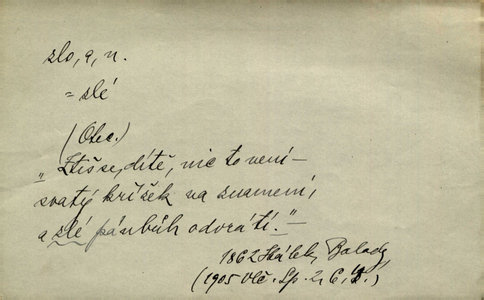 zlo, a, n.
= zlé
(Otec.)
„Ztiš se, dítě, nic to není –
svatý křížek na znamení,
a zlé pánbůh odvrátí.“ –
1862 Hálek, Balady
(1905 Vlč. Sp. 2, 6,